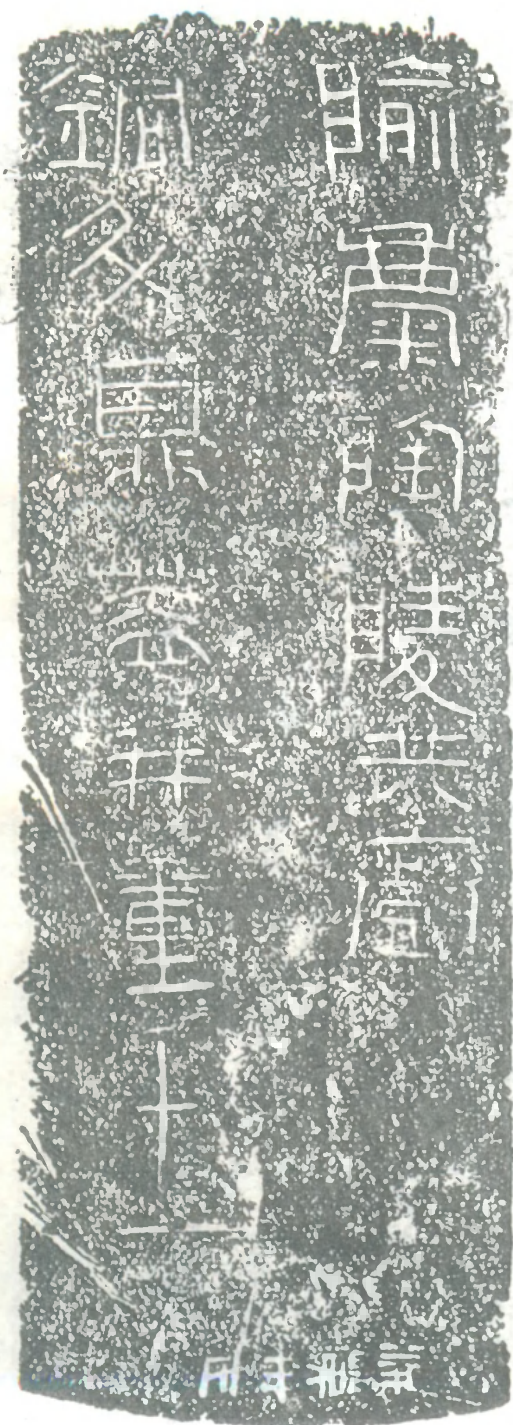 隃麋陶陵共廚
銅斗鼎蓋并重十一斤